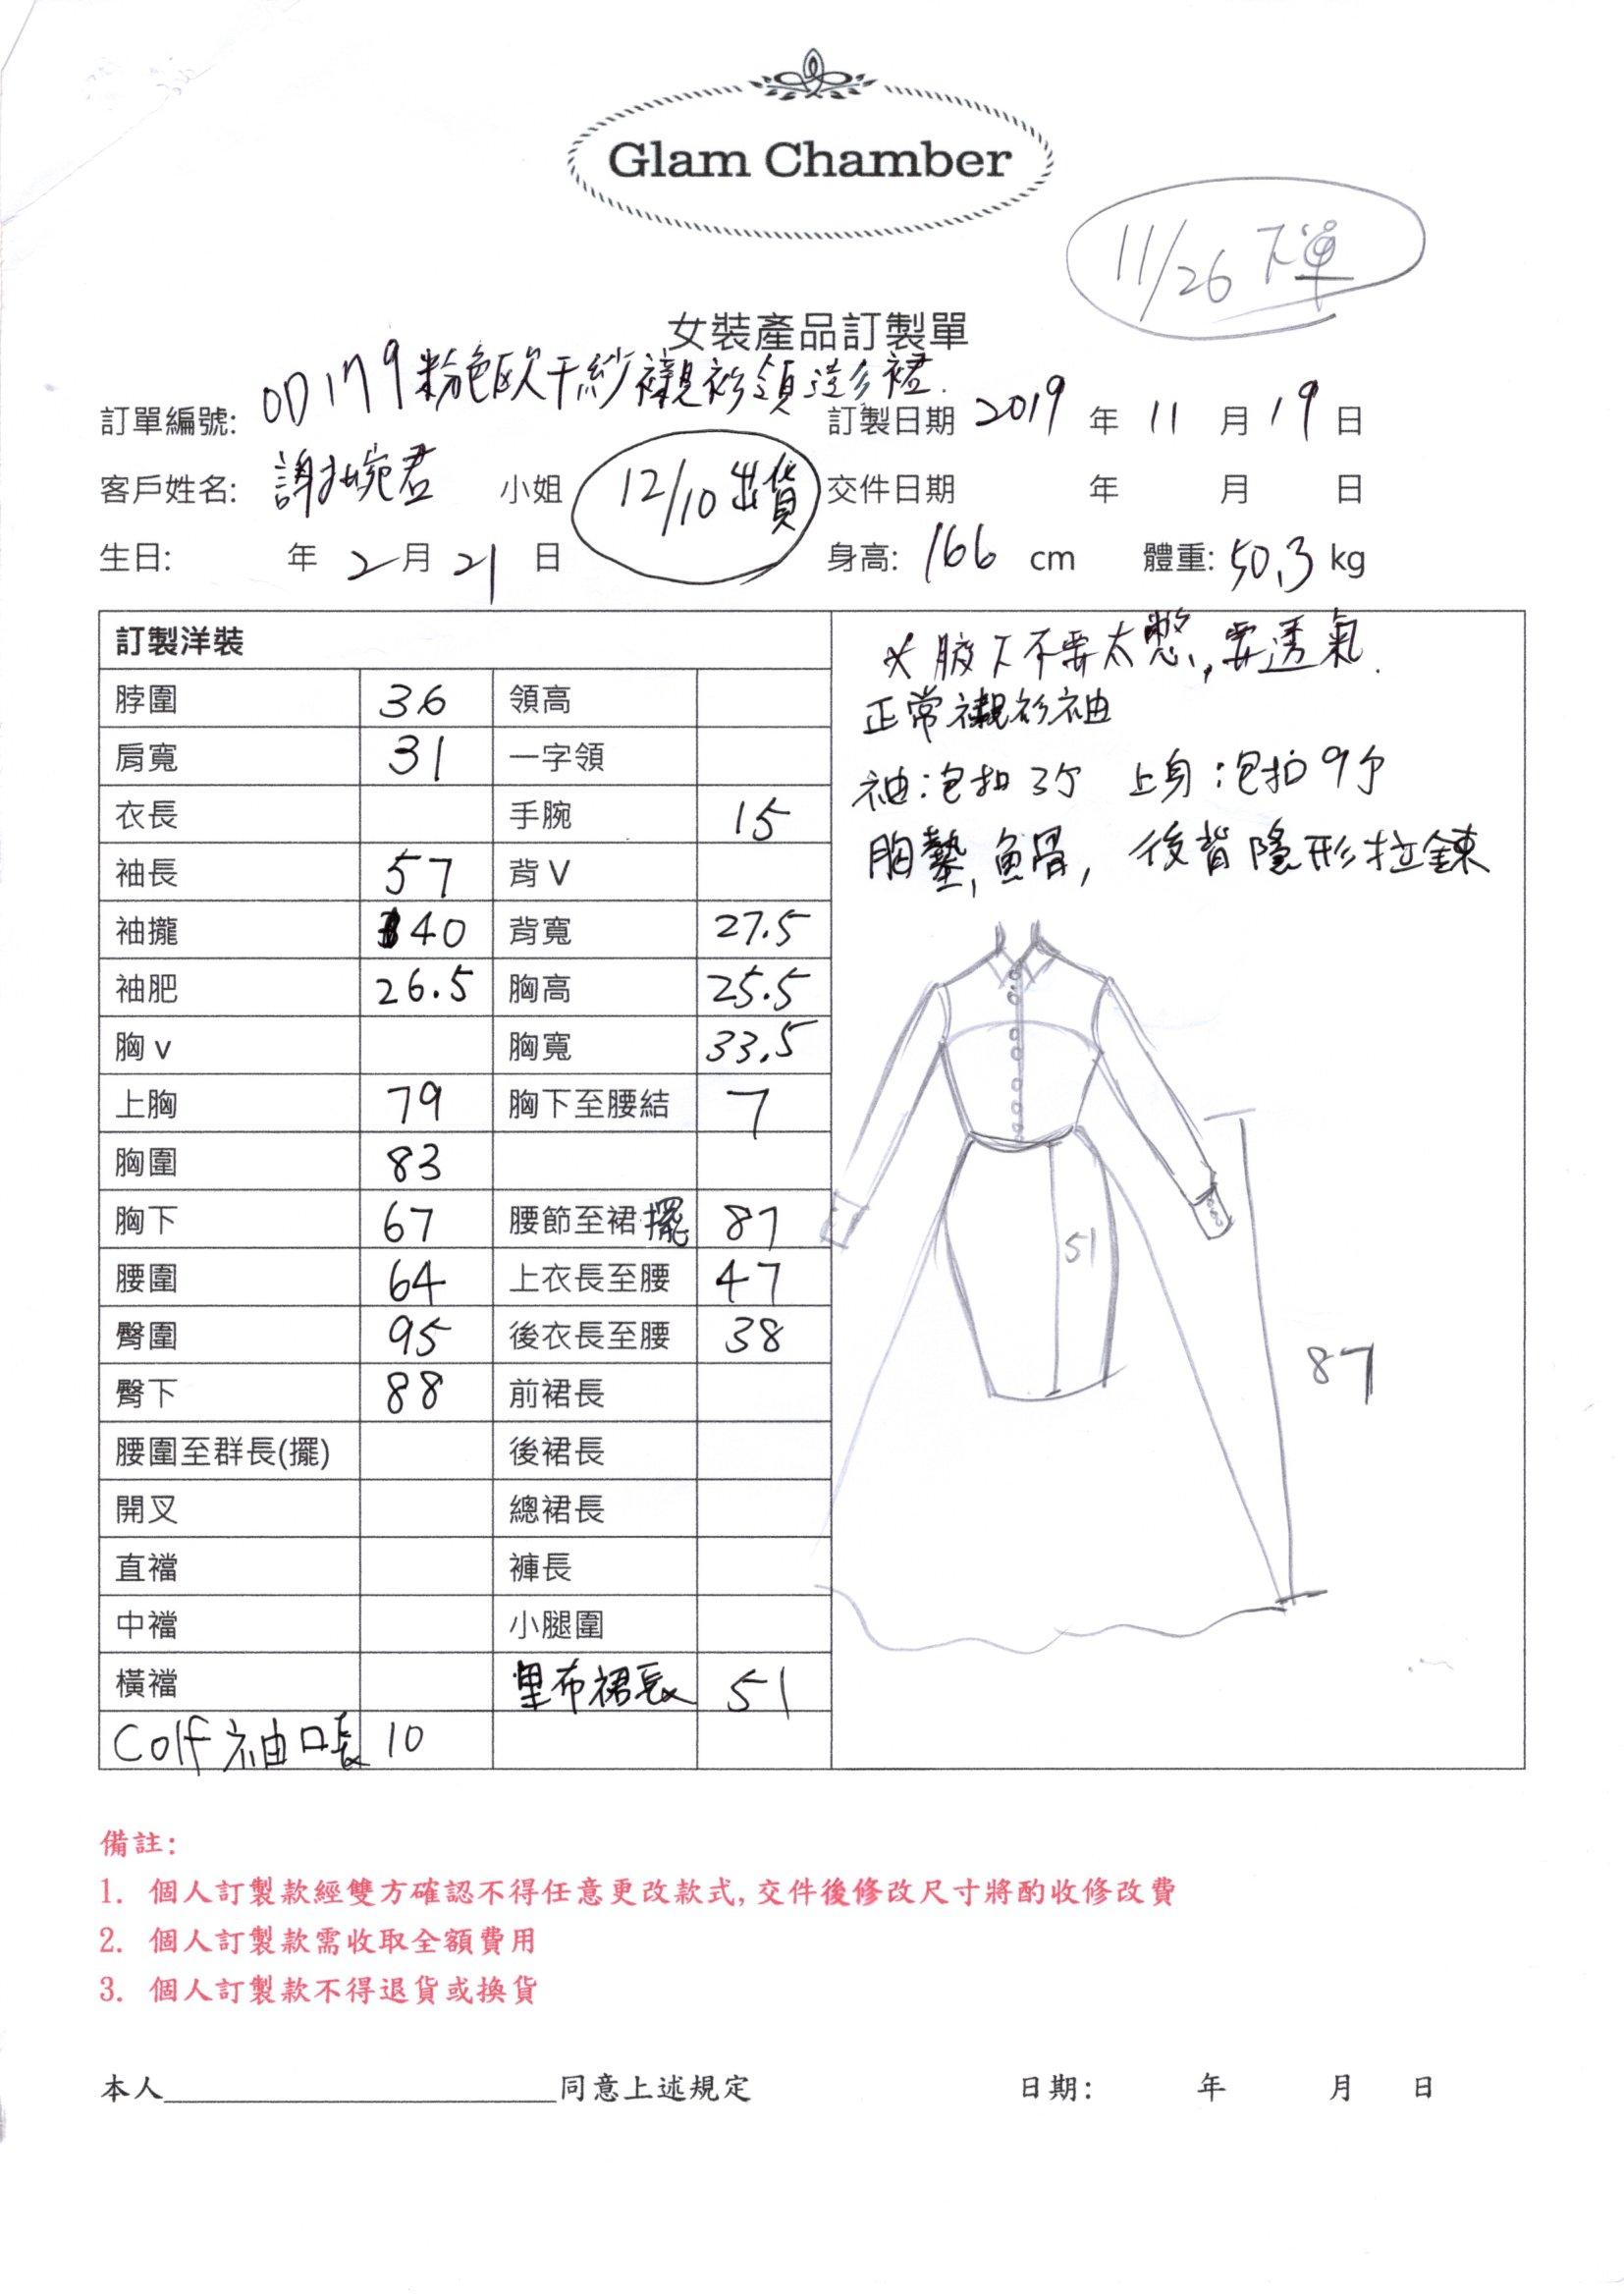 Glam Chamber
11/26 下單
女裝產品訂製單
訂單編號: OD1179粉色歐干紗襯衫領澎裙. 訂製日期 2019 年 11 月 19 日
客戶姓名: 謝婉君 小姐 12/10出貨 交件日期 年 月 日
生日: 年 2 月 21 日 身高: 166 cm 體重: 50.3 kg
訂製洋裝
脖圍 36 領高
肩寬 31 一字領
衣長 手腕 15
袖長 57 背V
袖攏 40 背寬 27.5
袖肥 26.5 胸高 25.5
胸v 胸寬 33.5
上胸 79 胸下至腰結 7
胸圍 83
胸下 67 腰節至裙擺 87
腰圍 64 上衣長至腰 47
臀圍 95 後衣長至腰 38
臀下 88 前裙長
腰圍至群長(擺) 後裙長
開叉 總裙長
直襠 褲長
中襠 小腿圍
橫襠 里布裙長 51
Colf袖口長 10
*腋下不要太憋, 要透氣.
正常襯衫袖
袖:包扣3个 上身:包扣9个
胸墊, 魚骨, 後背隱形拉鍊
51
87
備註:
1. 個人訂製款經雙方確認不得任意更改款式, 交件後修改尺寸將酌收修改費
2. 個人訂製款需收取全額費用
3. 個人訂製款不得退貨或換貨
本人____________________同意上述規定 日期: 年 月 日